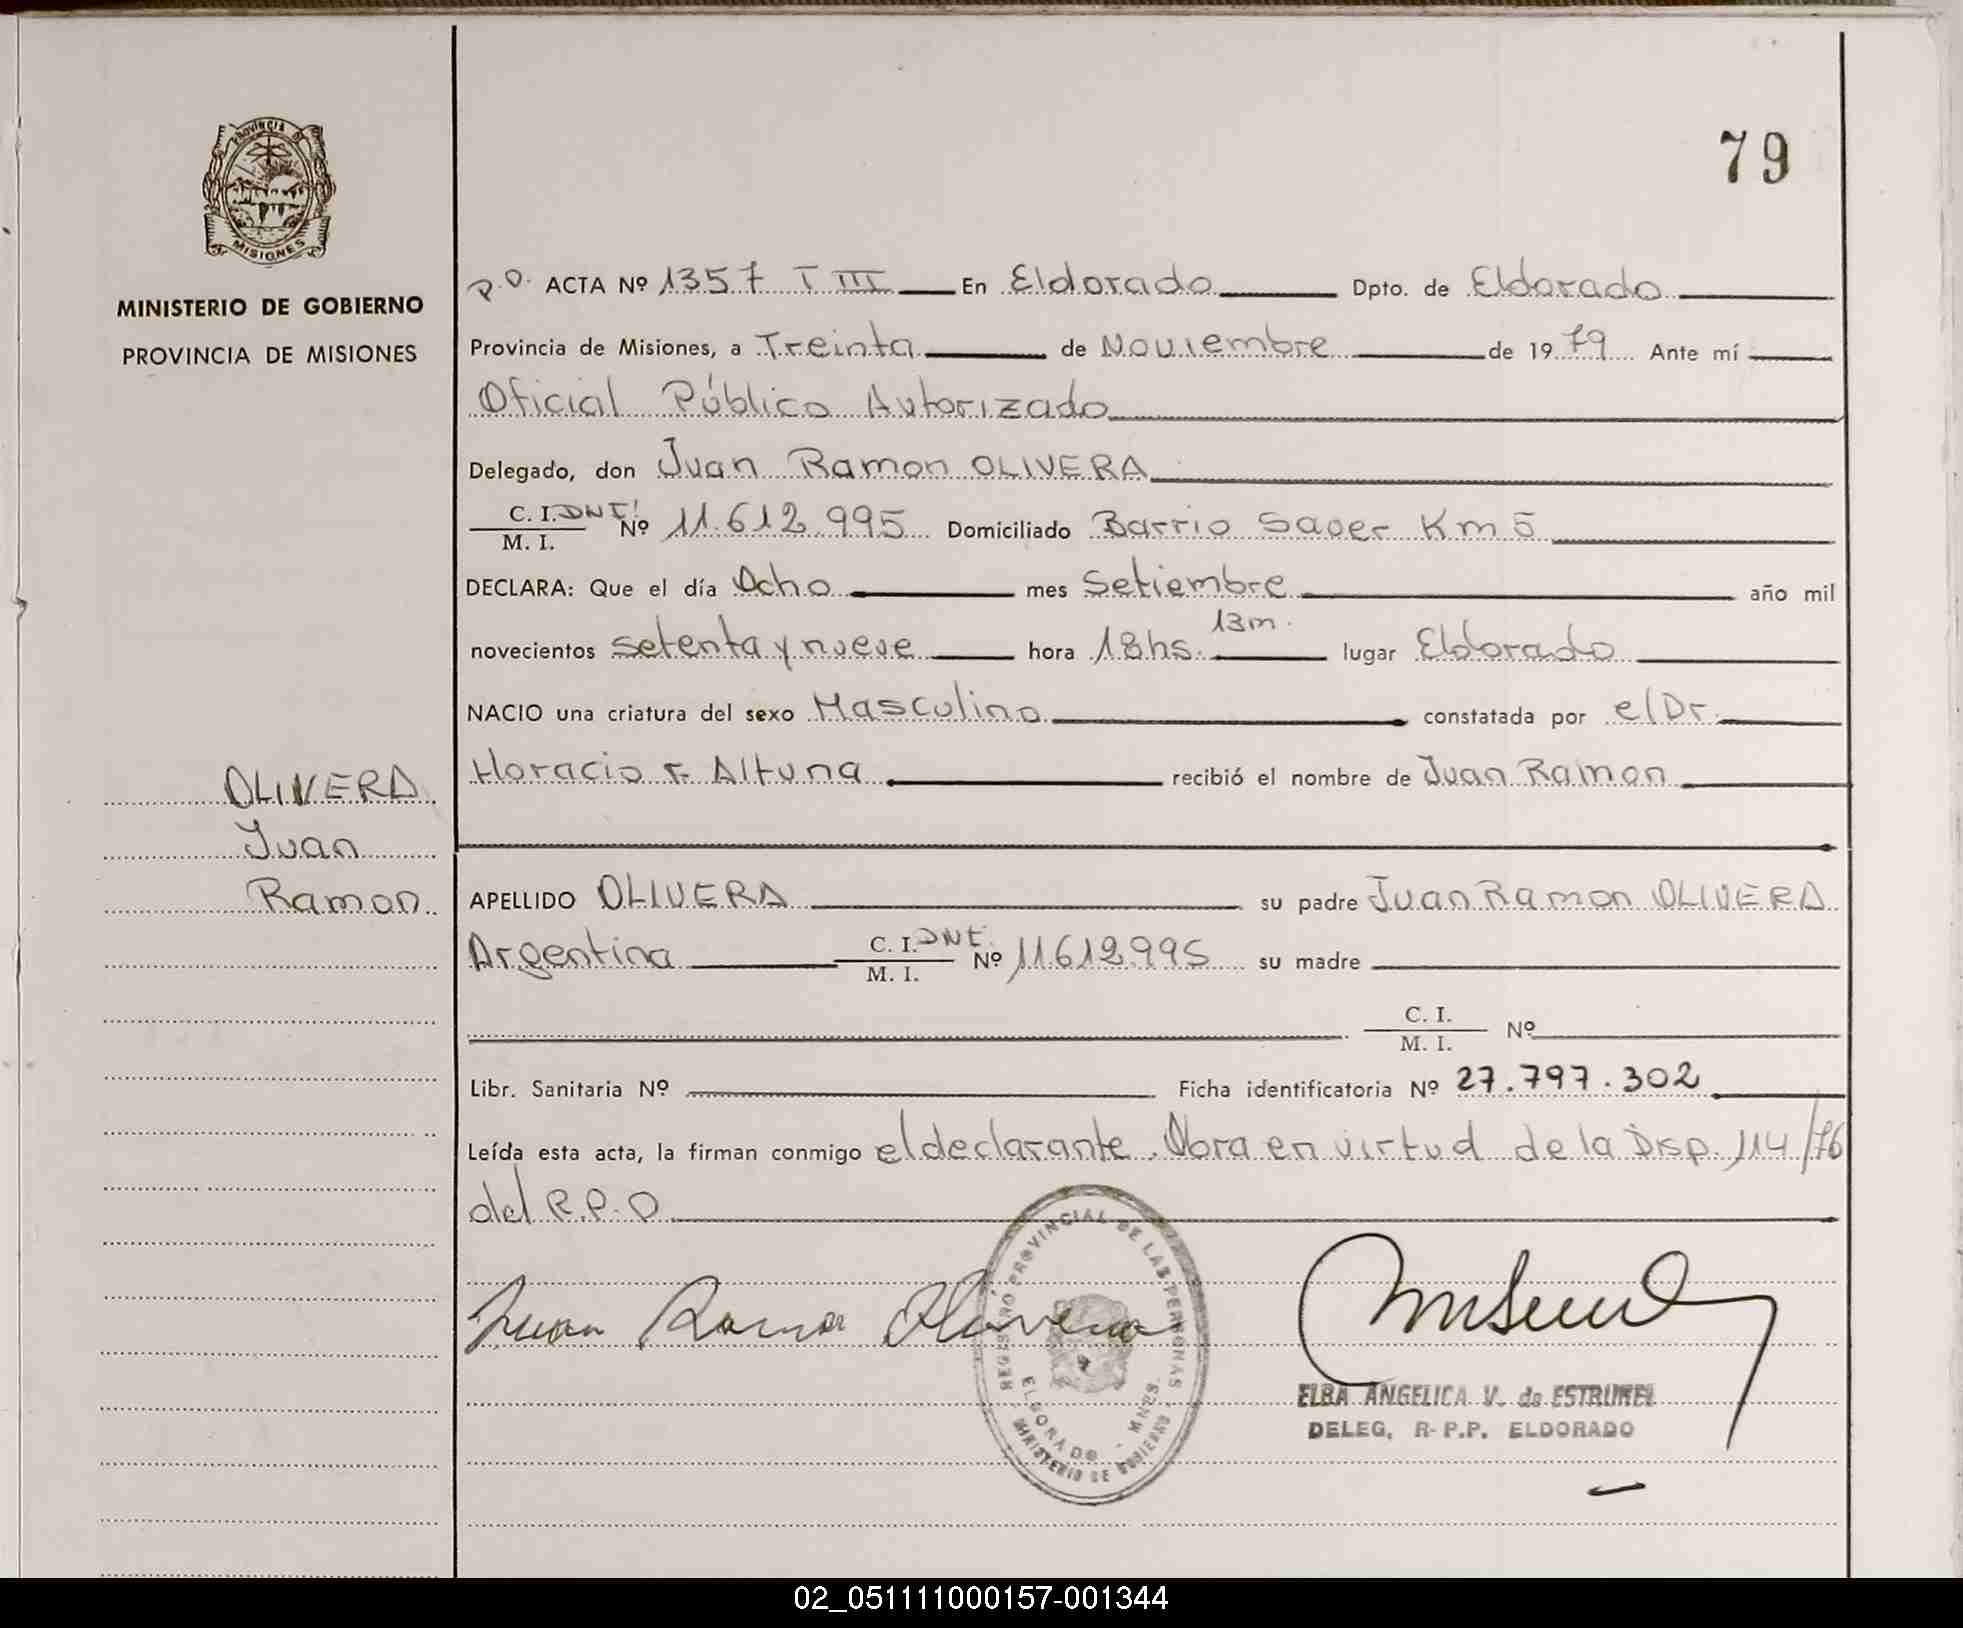 79
PROVINCIA DE
MISIONES
MINISTERIO DE GOBIERNO
PROVINCIA DE MISIONES
P.D. ACTA Nº 1357 T III En Eldorado Dpto. de Eldorado
Provincia de Misiones, a Treinta de Noviembre de 1979 Ante mí
Oficial Público Autorizado
Delegado, don Juan Ramon OLIVERA
C. I. DNI Nº 11.612.995 Domiciliado Barrio Saver Km 5
M. I.
DECLARA: Que el día Ocho mes Setiembre año mil
novecientos setenta y nueve hora 18hs. 13m. lugar Eldorado
NACIO una criatura del sexo Masculino constatada por el Dr.
Horacio F. Altuna recibió el nombre de Juan Ramon
OLIVERA
Juan
Ramon
APELLIDO OLIVERA su padre Juan Ramon OLIVERA
Argentina C. I. DNI. Nº 11612995 su madre
M. I.
C. I. Nº
M. I.
Libr. Sanitaria Nº Ficha identificatoria Nº 27.797.302
Leída esta acta, la firman conmigo el declarante. Obra en virtud de la Disp. 114/76
del R.P.P.
Juan Ramon Olivera
REGISTRO PROVINCIAL DE LAS PERSONAS
ELDORADO - MNES.
MINISTERIO DE GOBIERNO
ELBA ANGELICA V. de ESTRUMEL
DELEG, R-P.P. ELDORADO
02_051111000157-001344